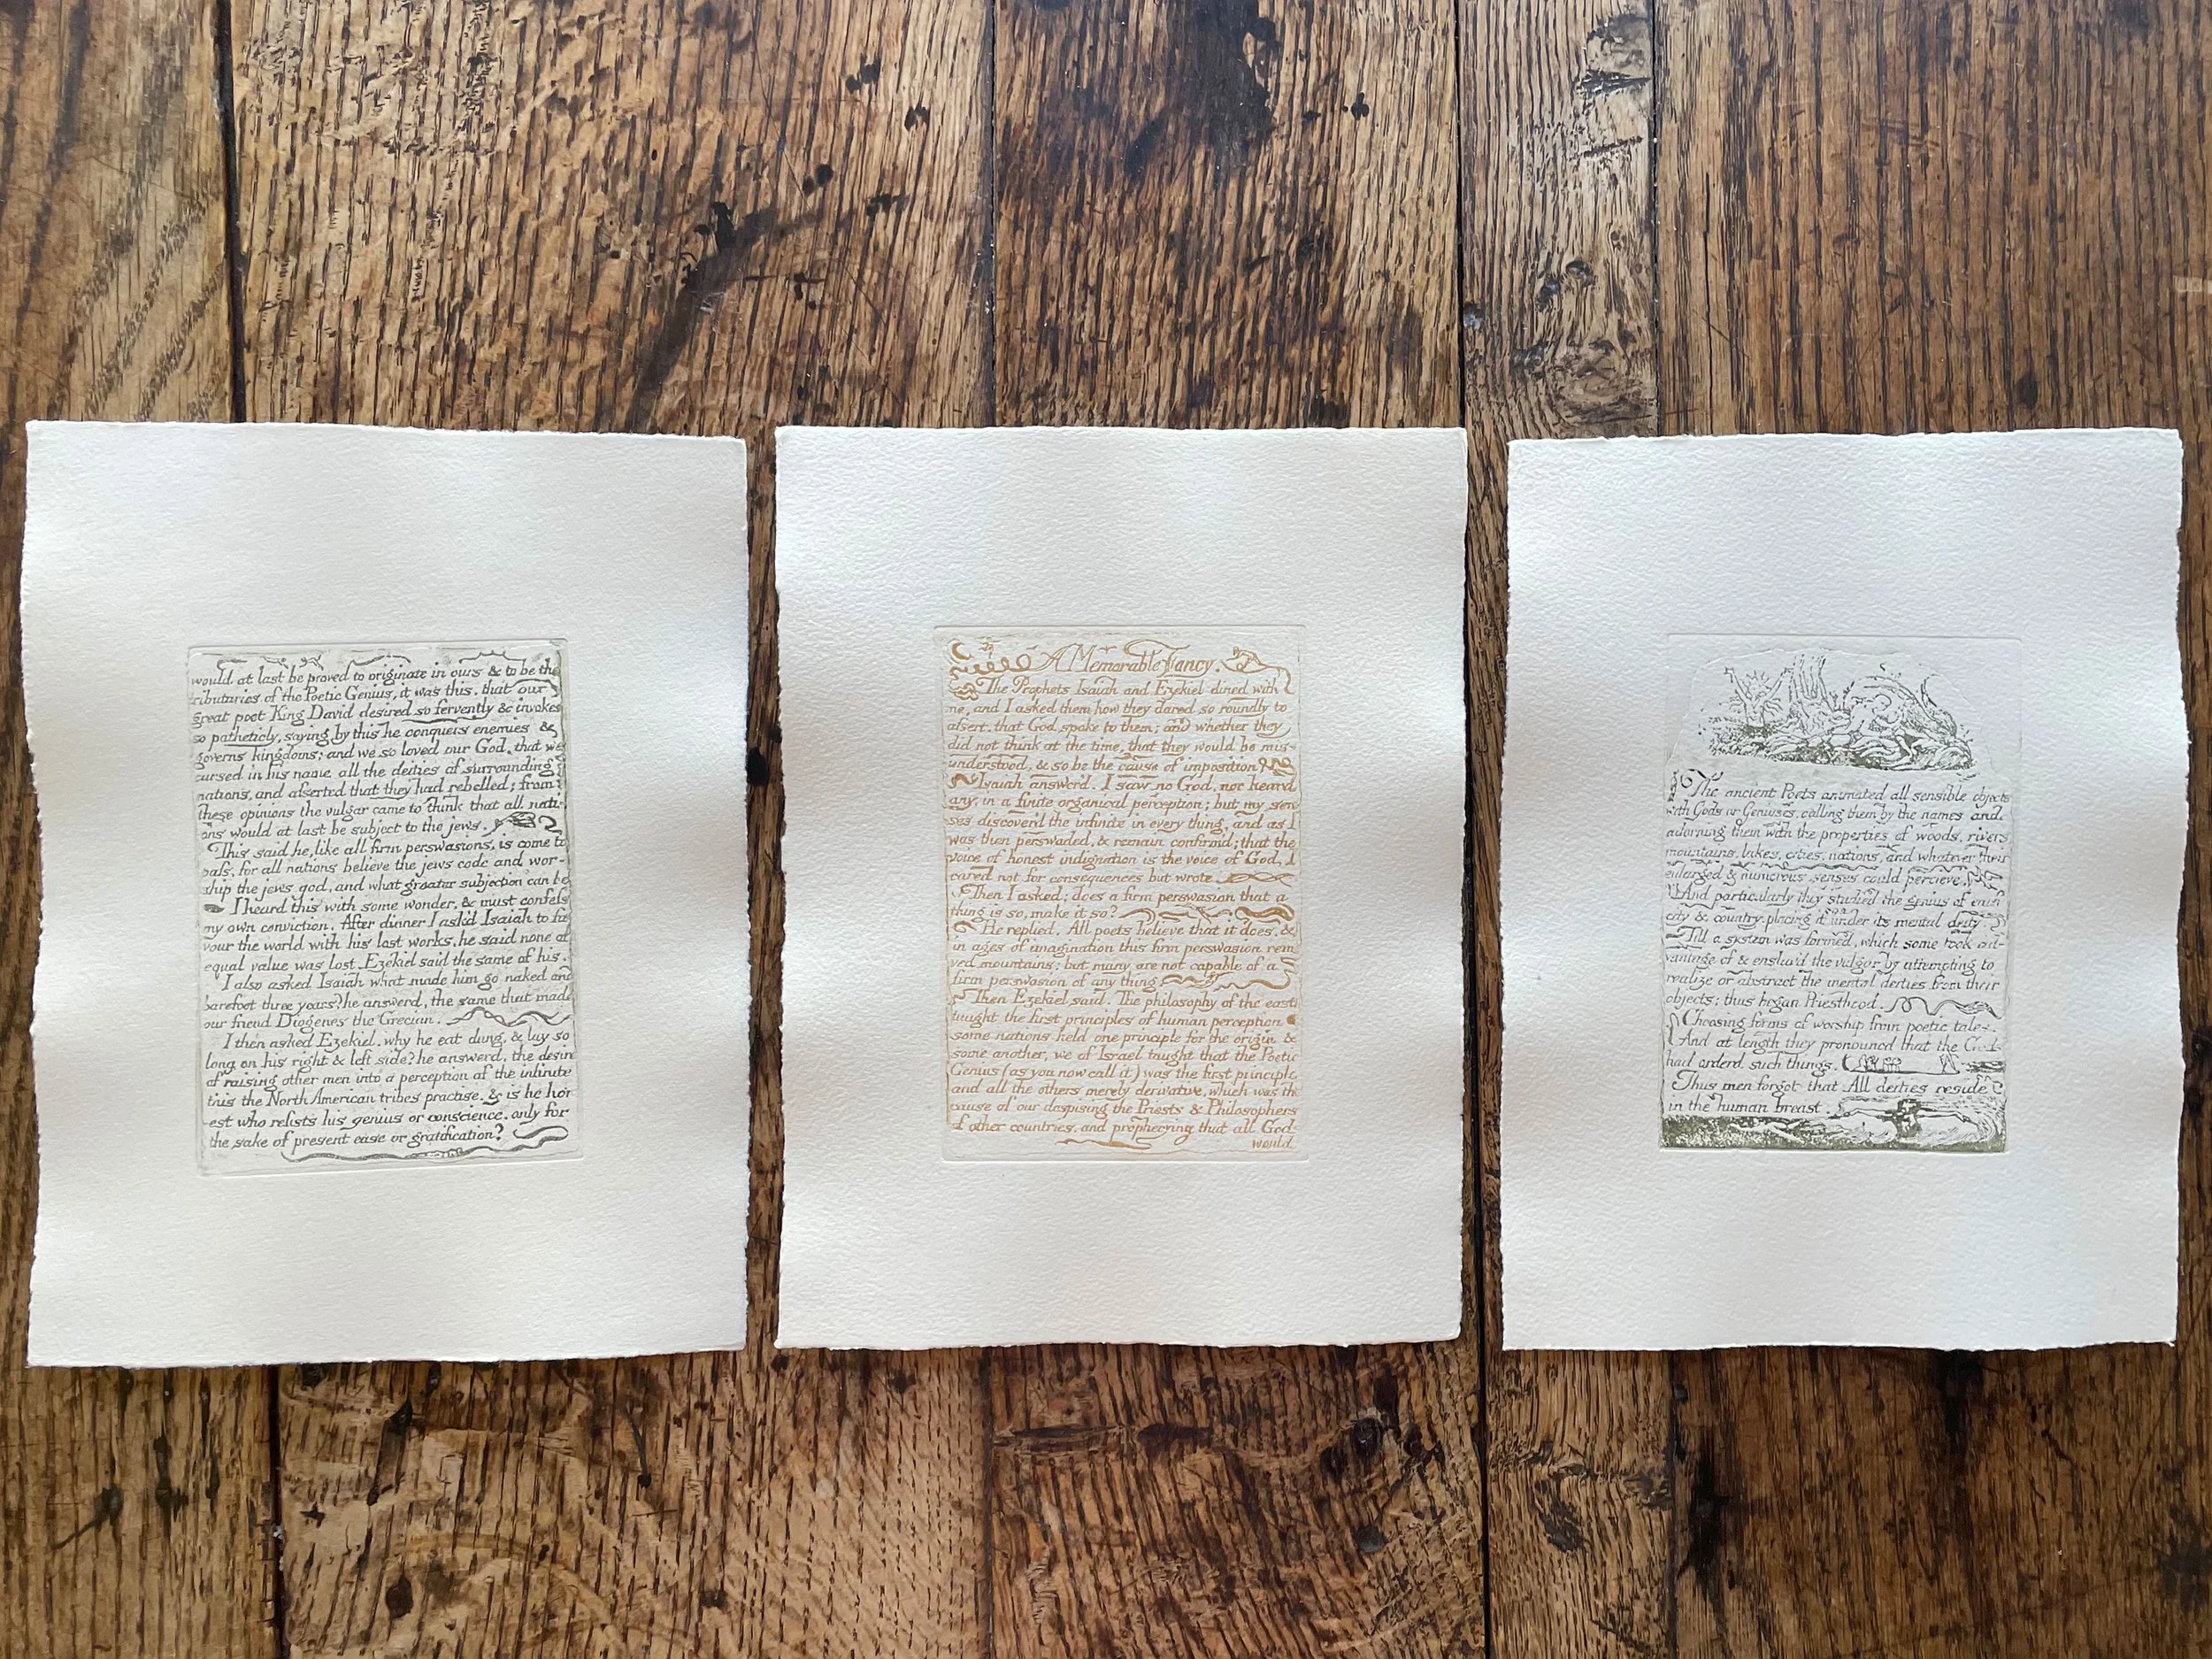 would at last be proved to originate in ours & to be the
tributaries of the Poetic Genius, it was this. that our
great poet King David desired so fervently & invokes
so patheticly, saying by this he conquers enemies &
governs kingdoms; and we so loved our God. that we
cursed in his name all the deities of surrounding
nations, and asserted that they had rebelled; from
these opinions the vulgar came to think that all nati-
ons would at last be subject to the jews.
This said he, like all firm perswasions, is come to
pass, for all nations believe the jews code and wor-
ship the jews god, and what greater subjection can be
I heard this with some wonder, & must confess
my own conviction. After dinner I ask'd Isaiah to fa-
vour the world with his lost works, he said none of
equal value was lost. Ezekiel said the same of his.
I also asked Isaiah what made him go naked and
barefoot three years? he answerd, the same that made
our friend Diogenes the Grecian.
I then asked Ezekiel. why he eat dung, & lay so
long on his right & left side? he answerd, the desire
of raising other men into a perception of the infinite
this the North American tribes practise. & is he hon
est who resists his genius or conscience. only for
the sake of present ease or gratification?
A Memorable Fancy.
The Prophets Isaiah and Ezekiel dined with
me, and I asked them how they dared so roundly to
assert. that God spoke to them; and whether they
did not think at the time, that they would be mis-
understood, & so be the cause of imposition
Isaiah answer'd. I saw no God, nor heard
any, in a finite organical perception; but my sen
ses discover'd the infinite in every thing, and as I
was then perswaded, & remain confirmed; that the
voice of honest indignation is the voice of God, I
cared not for consequences but wrote.
Then I asked; does a firm perswasion that a
thing is so, make it so?
He replied. All poets believe that it does, &
in ages of imagination this firm perswasion remo
ved mountains; but many are not capable of a
firm perswasion of any thing
Then Ezekiel said. The philosophy of the east
taught the first principles of human perception
some nations held one principle for the origin &
some another, we of Israel taught that the Poetic
Genius (as you now call it) was the first principle
and all the others merely derivative, which was the
cause of our despising the Priests & Philosophers
of other countries, and prophecying that all Gods
would
The ancient Poets animated all sensible objects
with Gods or Geniuses, calling them by the names and
adorning them with the properties of woods, rivers
mountains, lakes, cities, nations, and whatever their
enlarged & numerous senses could percieve.
And particularly they studied the genius of each
city & country. placing it under its mental deity.
Till a system was formed, which some took ad-
vantage of & enslav'd the vulgar by attempting to
realize or abstract the mental deities from their
objects; thus began Priesthood.
Choosing forms of worship from poetic tales.
And at length they pronounced that the Gods
had orderd such things.
Thus men forgot that All deities reside
in the human breast.